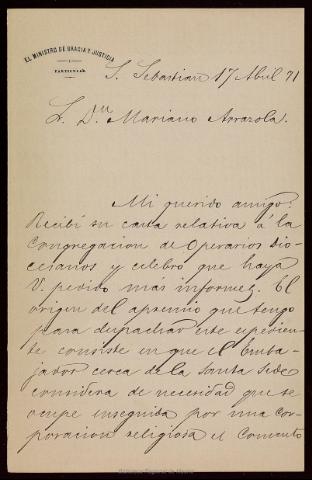 EL MINISTRO DE GRACIA Y JUSTICIA
PARTICULAR
S. Sebastian 17 Abril 91
Sr. Dn. Mariano Arrazola.
Mi querido amigo:
Recibí su carta relativa á la
Congregacion de Operarios Dio-
cesanos y celebro que haya
V. pedido más informes. El
origen del apremio que tengo
para despachar este expedien-
te consiste en que el Emba-
jador cerca de la Santa Sede
considera de necesidad que se
ocupe enseguida por una Cor-
poracion religiosa el Convento